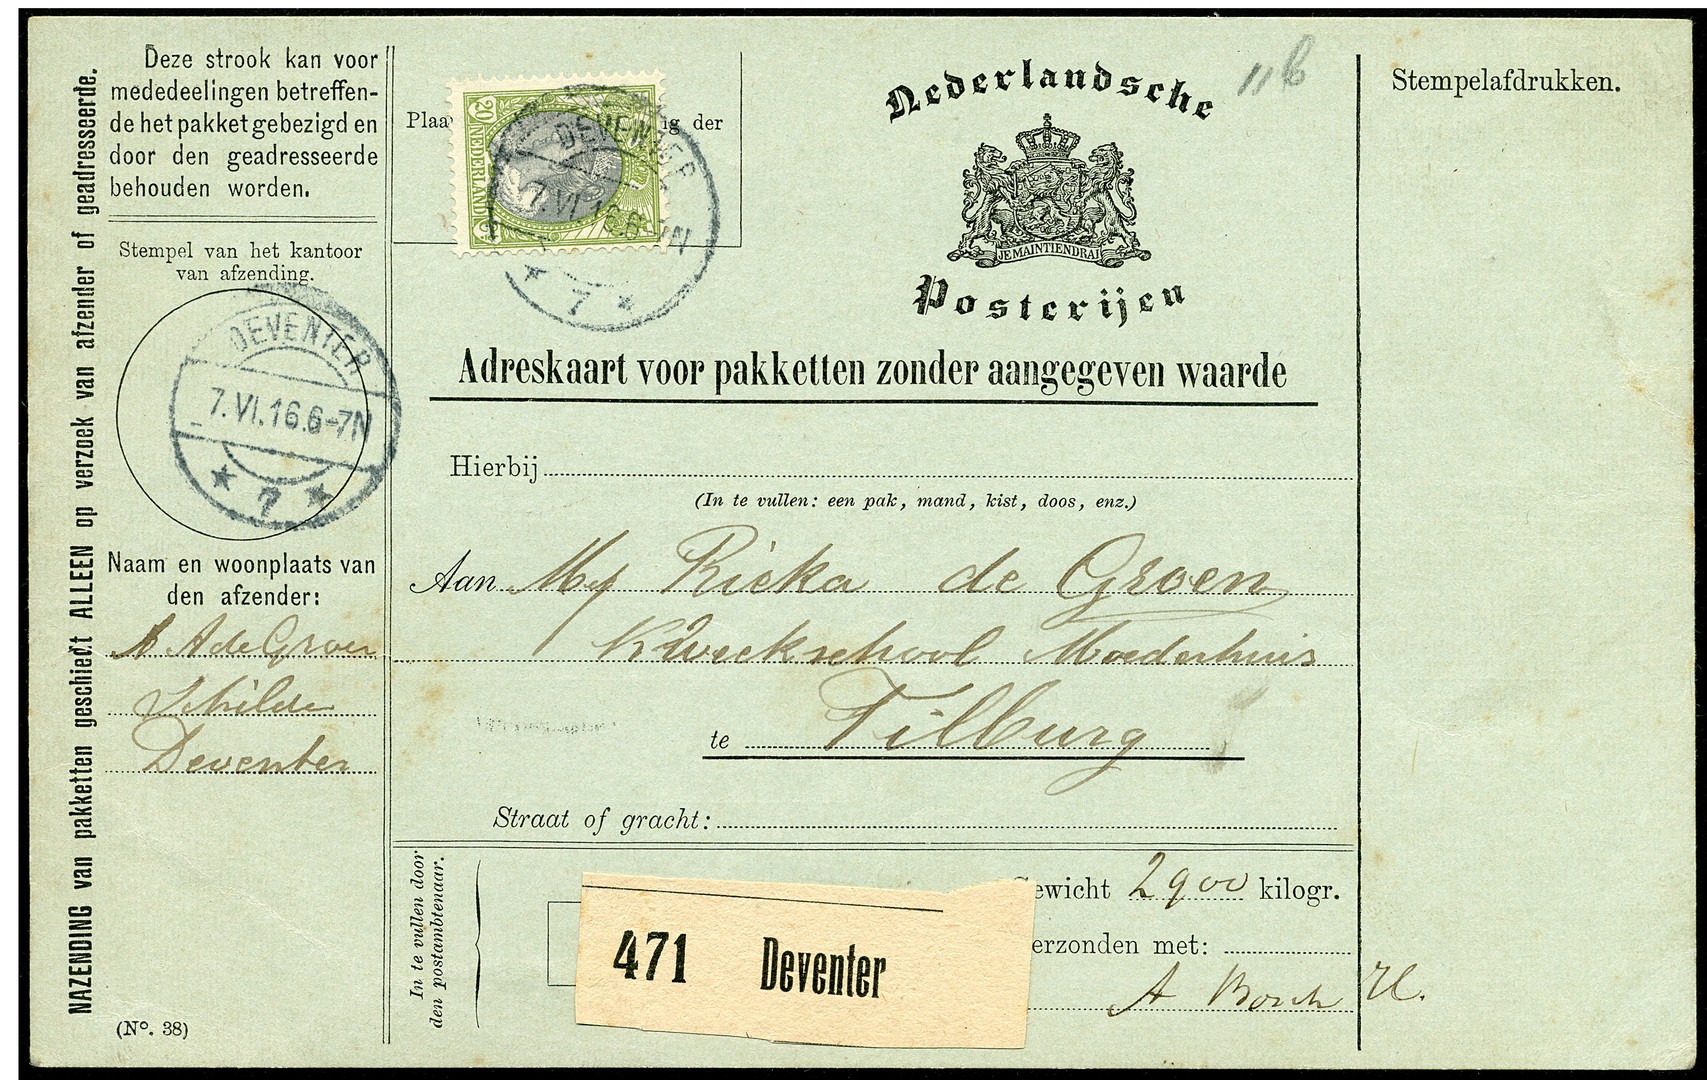 Deze strook kan voor
mededeelingen betreffen-
de het pakket gebezigd en
door den geadresseerde
behouden worden.
Stempel van het kantoor
van afzending.
DEVENTER
7.VI.16.6-7N
7
Naam en woonplaats van
den afzender:
A de Groen
Schilder
Deventer
NAZENDING van pakketten geschiedt ALLEEN op verzoek van afzender of geadresseerde.
(Nº. 38)
Plaa
ng der
20 NEDERLAND
DEVENTER
7.VI.16.6- 7N
7
11b
Nederlandsche
JE MAINTIENDRAI
Posterijen
Adreskaart voor pakketten zonder aangegeven waarde
Hierbij
(In te vullen: een pak, mand, kist, doos, enz.)
Aan Mej Rieka de Groen
Kweekschool Moederhuis
te Tilburg
Straat of gracht:
In te vullen door
den postambtenaar.
471 Deventer
Gewicht 2900 kilogr.
erzonden met:
A Bosch
Stempelafdrukken.